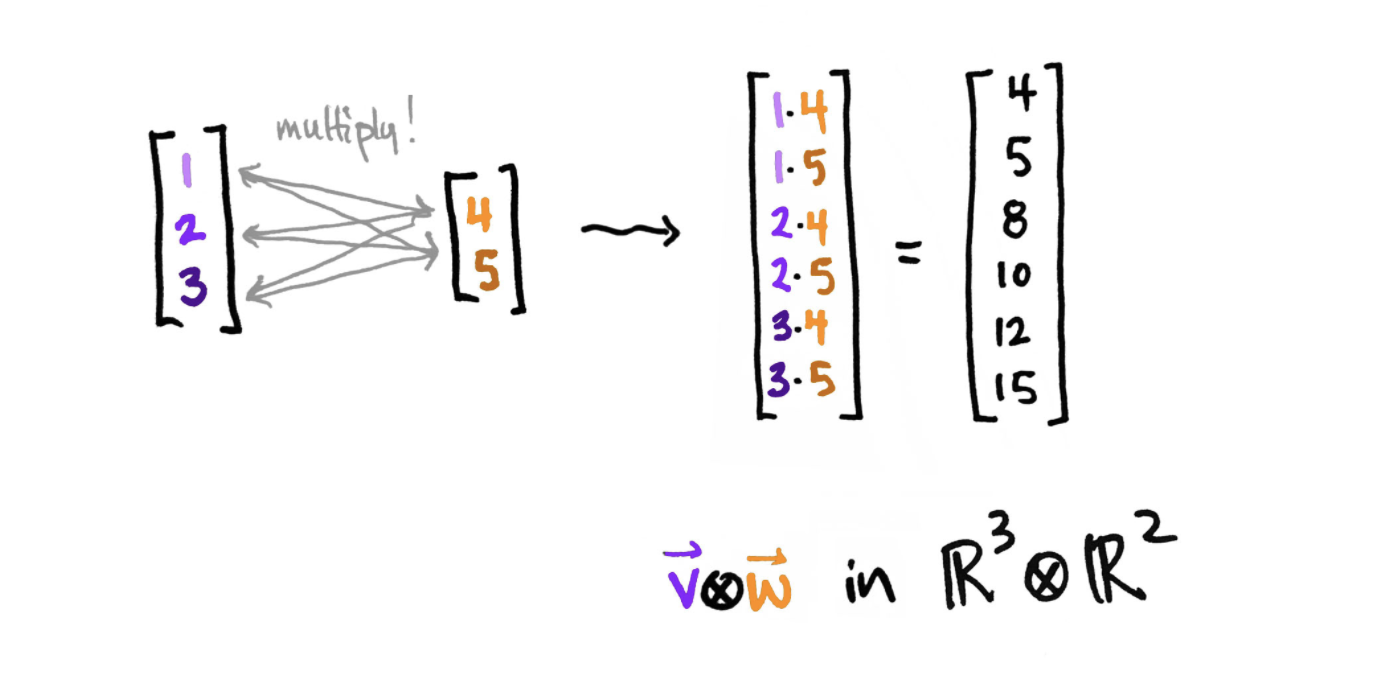 multiply!
[1 2 3]
[4 5]
→
[1·4
1·5
2·4
2·5
3·4
3·5]
=
[4
5
8
10
12
15]
v⃗⊗w⃗ in ℝ³⊗ℝ²